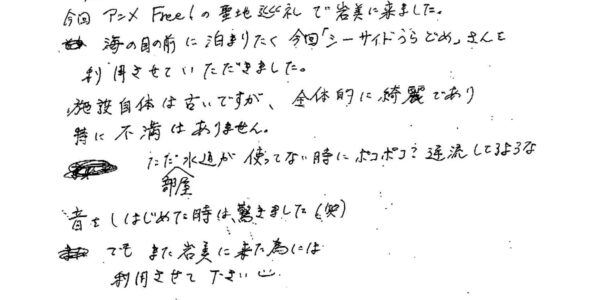 今回 アニメ Free!の聖地巡礼で岩美に来ました。
海の目の前に泊まりたく今回「シーサイドうらどめ」さんを
利用させていただきました。
施設自体は古いですが、全体的に綺麗であり
特に不満はありません。
ただ水道が使ってない時にポコポコ?逆流してるような
部屋
音をしはじめた時は、驚きました(笑)
でも また岩美に来た為には
利用させて下さい